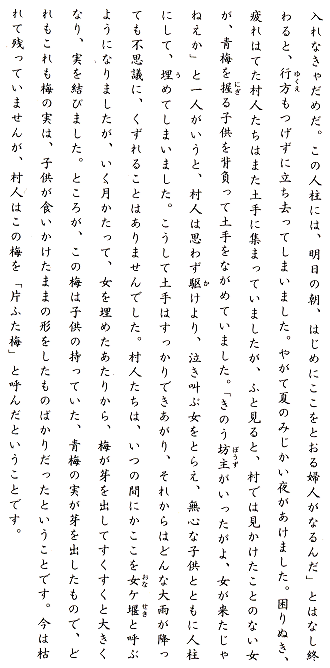 入れなきゃだめだ。この人柱には、明日の朝、はじめにここをとおる婦人がなるんだ」とはなし終
わると、行方もつげずに立ち去ってしまいました。やがて夏のみじかい夜があけました。困りぬき、
疲れはてた村人たちはまた土手に集まっていましたが、ふと見ると、村では見かけたことのない女
が、青梅を握る子供を背負って土手をながめていました。「きのう坊主がいったがよ、女が来たじゃ
ねえか」と一人がいうと、村人は思わず駆けより、泣き叫ぶ女をとらえ、無心な子供とともに人柱
にして、埋めてしまいました。こうして土手はすっかりできあがり、それからはどんな大雨が降っ
ても不思議に、くずれることはありませんでした。村人たちは、いつの間にかここを女ケ堰と呼ぶ
ようになりましたが、いく月かたって、女を埋めたあたりから、梅が芽を出してすくすくと大きく
なり、実を結びました。ところが、この梅は子供の持っていた、青梅の実が芽を出したもので、ど
れもこれも梅の実は、子供が食いかけたままの形をしたものばかりだったということです。今は枯
れて残っていませんが、村人はこの梅を「片ふた梅」と呼んだということです。